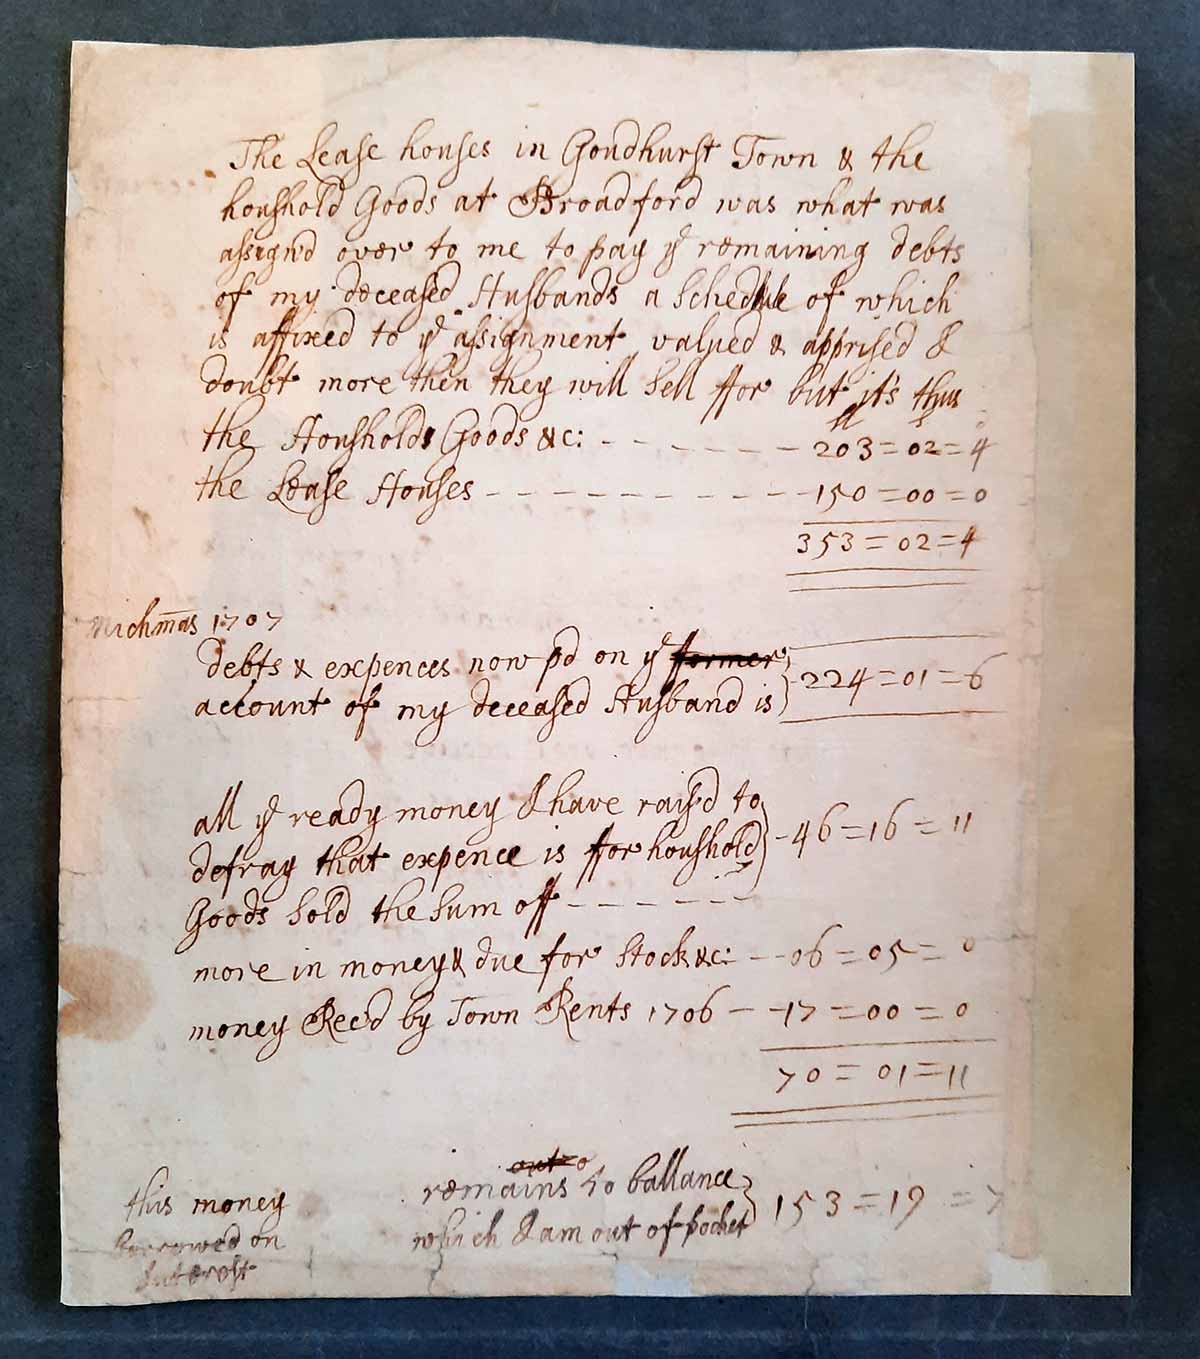 The Lease houses in Goudhurst Town & the
houshold Goods at Broadford was what was
assign'd over to me to pay ye remaining debts
of my deceased Husbands a Schedule of which
is affixed to ye assignment valued & apprised I
doubt more then they will Sell ffor but it's thus
ll s d
the Housholds Goods &c: - - - - - - 203=02=4
the Lease Houses - - - - - - - - - - 150=00=0
353=02=4
Michmas 1707
debts & expences now pd on ye former
account of my deceased Husband is } 224=01=6
all ye ready money I have rais'd to
defray that expence is ffor houshold } 46=16=11
Goods Sold the Sum off - - - - - -
more in money & due for Stock &c: - - 06=05=0
money Rec'd by Town Rents 1706 - - 17=00=0
70=01=11
out o
remains to ballance
which I am out of pocket } 153=19=7
this money
borrowed on
Interest